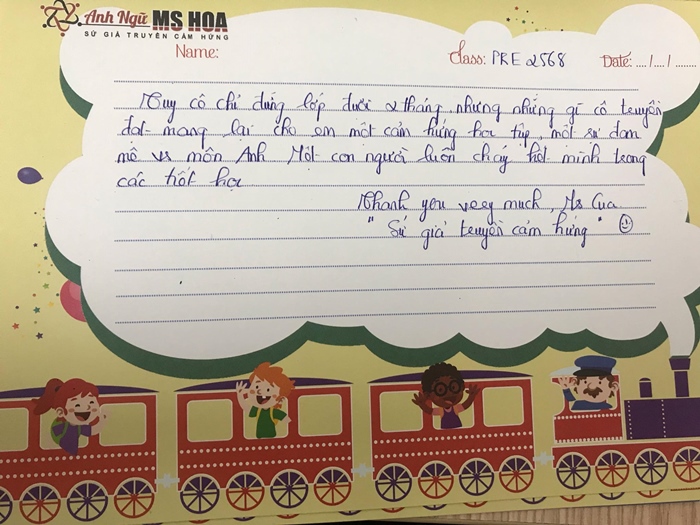 Anh Ngữ MS HOA
SỨ GIẢ TRUYỀN CẢM HỨNG
Name:
Class: PRE 2568
Date: ..../..../........
Tuy cô chỉ đứng lớp dưới 2 tháng nhưng những gì cô truyền
đạt mang lại cho em một cảm hứng học tập, một sự đam
mê vs môn Anh Một con người luôn cháy hết mình trong
các tiết học
Thank you very much, Ms Cua
"Sứ giả truyền cảm hứng" ☺